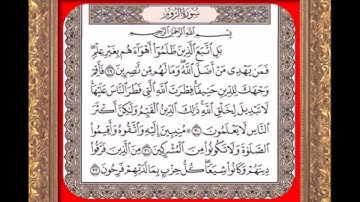 سُورَةُ الرُّومِ
بِسْمِ اللَّهِ الرَّحْمَٰنِ الرَّحِيمِ
بَلِ اتَّبَعَ الَّذِينَ ظَلَمُوا أَهْوَاءَهُم بِغَيْرِ عِلْمٍ
فَمَن يَهْدِي مَنْ أَضَلَّ اللَّهُ وَمَا لَهُم مِّن نَّاصِرِينَ ٢٩ فَأَقِمْ
وَجْهَكَ لِلدِّينِ حَنِيفًا فِطْرَتَ اللَّهِ الَّتِي فَطَرَ النَّاسَ عَلَيْهَا
لَا تَبْدِيلَ لِخَلْقِ اللَّهِ ذَٰلِكَ الدِّينُ الْقَيِّمُ وَلَٰكِنَّ أَكْثَرَ
النَّاسِ لَا يَعْلَمُونَ ٣٠ مُنِيبِينَ إِلَيْهِ وَاتَّقُوهُ وَأَقِيمُوا
الصَّلَاةَ وَلَا تَكُونُوا مِنَ الْمُشْرِكِينَ ٣١ مِنَ الَّذِينَ فَرَّقُوا
دِينَهُمْ وَكَانُوا شِيَعًا كُلُّ حِزْبٍ بِمَا لَدَيْهِمْ فَرِحُونَ ٣٢